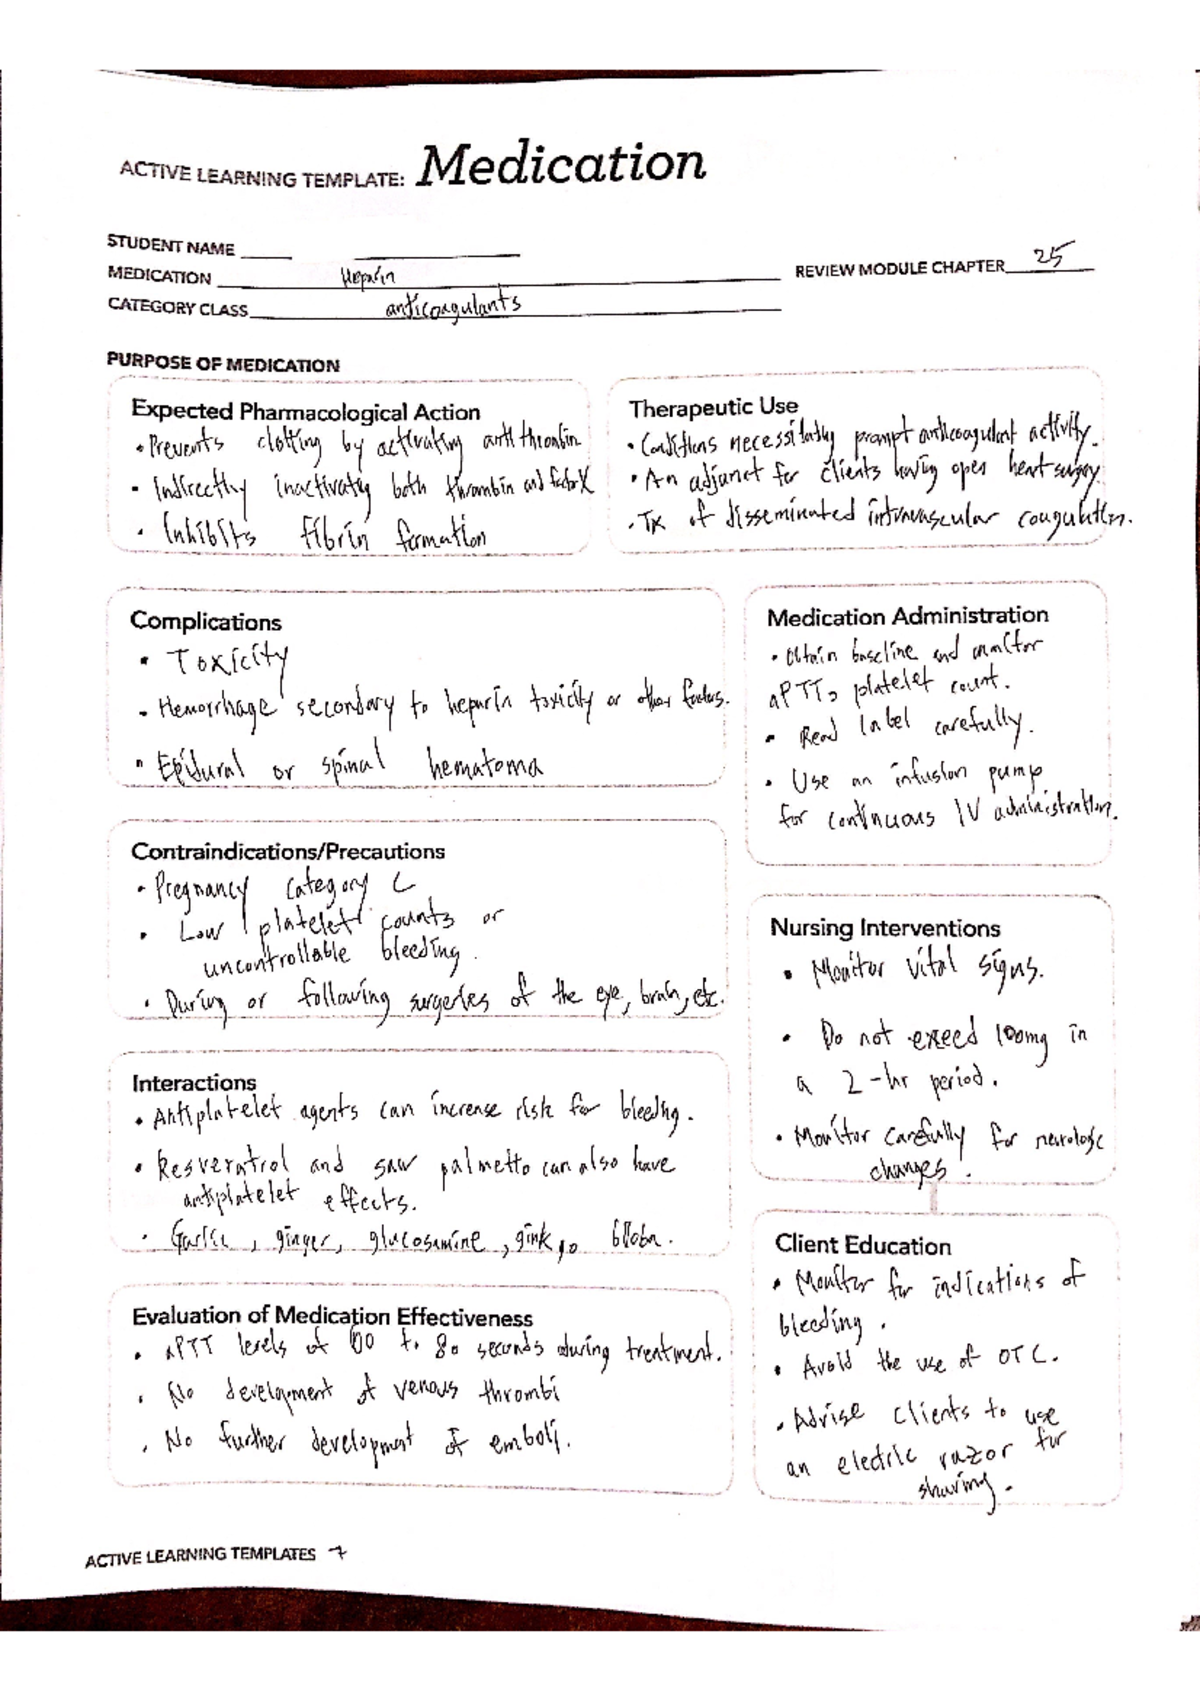 ACTIVE LEARNING TEMPLATE: Medication
STUDENT NAME
MEDICATION Heparin
REVIEW MODULE CHAPTER 25
CATEGORY CLASS anticoagulants
PURPOSE OF MEDICATION
Expected Pharmacological Action
• Prevents clotting by activating antithrombin
• Indirectly inactivating both thrombin and factor X
• Inhibits fibrin formation
Therapeutic Use
• Conditions necessitating prompt anticoagulant activity.
• An adjunct for clients having open heart surgery.
• Tx of disseminated intravascular coagulation.
Complications
• Toxicity
• Hemorrhage secondary to heparin toxicity or other factors.
• Epidural or spinal hematoma
Medication Administration
• Obtain baseline and monitor
aPTT, platelet count.
• Read label carefully.
• Use an infusion pump
for continuous IV administration.
Contraindications/Precautions
• Pregnancy Category C
• Low platelet counts or
uncontrollable bleeding.
• During or following surgeries of the eye, brain, etc.
Nursing Interventions
• Monitor vital signs.
• Do not exceed 100mg in
a 2-hr period.
• Monitor carefully for neurologic
changes.
Interactions
• Antiplatelet agents can increase risk for bleeding.
• Resveratrol and saw palmetto can also have
antiplatelet effects.
• Garlic, ginger, glucosamine, ginkgo biloba.
Evaluation of Medication Effectiveness
• aPTT levels of to 80 seconds during treatment.
• No development of venous thrombi
• No further development of emboli.
Client Education
• Monitor for indications of
bleeding.
• Avoid the use of OTC.
• Advise clients to use
an electric razor for
shaving.
ACTIVE LEARNING TEMPLATES 7